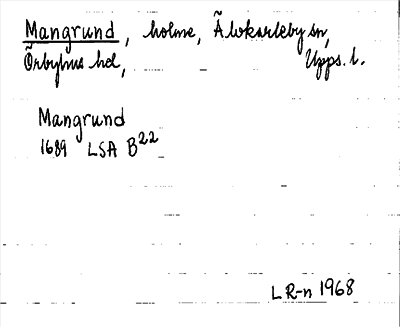 Mangrund, holme, Älvkarleby sn,
Örbyhus hd, Upps. l.
Mangrund
1689 LSA B22
LR-n 1968